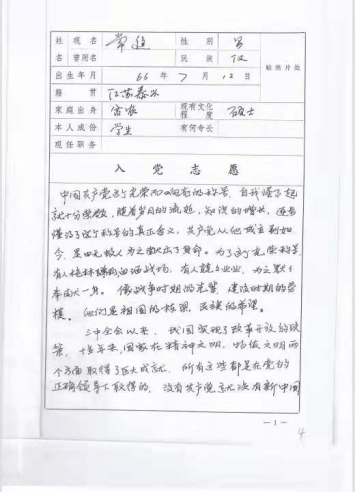 姓 现 名 常进 性 别 男
名 曾用名 民 族 汉 贴照片处
出生年月 66 年 7 月 12 日
籍 贯 江苏泰兴
家庭出身 富农 现有文化程度 硕士
本人成份 学生 有何专长
现任职务
入 党 志 愿
中国共产党这个光荣而响亮的称号,自我懂事起
就十分崇敬,随着岁月的流逝,知识的增长,逐步
懂得了这个称号的真正含义,共产党从他成立到如
今,是由无数人为之献出了生命。为了这个光荣称号,
有人兢兢业业,为之默默
奉献一身。战争时期的先辈,建设时期的劳
模。他们是祖国的栋梁,民族的希望。
三中全会以来,我国实现了改革开放的政
策,十多年来,国家在精神文明,物质文明两
个方面取得了巨大成就,所有这些都是在党的
正确领导下取得的,没有共产党就没有新中国
— 1 —
4